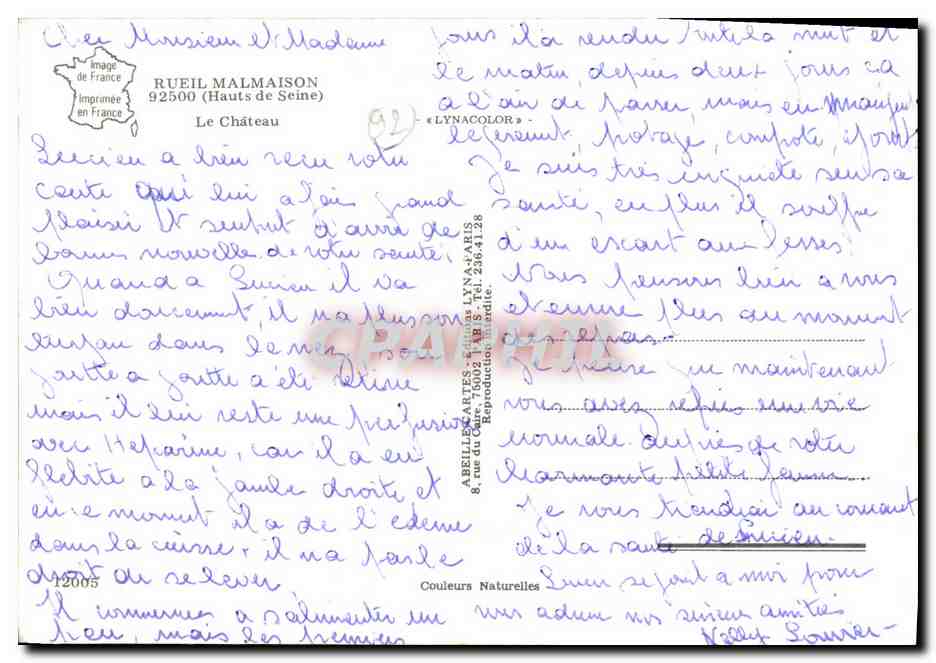 Cher Monsieur et Madame
Image
de France
Imprimée
en France
RUEIL MALMAISON
92500 (Hauts de Seine)
Le Château
92
- « LYNACOLOR » -
Lucien a bien reçu votre
carte qui lui a fais grand
plaisir et surtout d'avoir de
bonnes nouvelle de votre santé.
Quand a Lucien il va
bien doucement, il n'a plus son
tuyau dans le nez, son
goutte a goutte a été retiré
mais il lui reste une perfusion
avec Heparine, car il a eu
flebite a la jambe droite et
en ce moment il a de l'edeme
dans la cuisse, il n'a pas le
droit de se lever
12005
Il commence a s'alimenter un
peu, mais les premiers
ABEILLE-CARTES - Editions LYNA-PARIS
8, rue du Caire, 75002 PARIS - Tél. 236.41.28
Reproduction interdite.
CPARAMA
Couleurs Naturelles
jours il a rendu la nuit et
le matin, depuis deux jours ça
a l'air de passer, mais en mangeant
legerement, potage, compote, yaourt
Je suis très inquiète sur sa
santé, en plus il souffre
d'un escart aux fesses
Nous pensons bien a vous
et encore plus au moment
des repas.
Je pense que maintenant
vous avez repris une vie
normale. Auprès de votre
charmante petite femme
Je vous tiendrai au courant
de la santé de Lucien.
Lucien se joint a moi pour
vous adresser nos sincères amitiés
Nelly